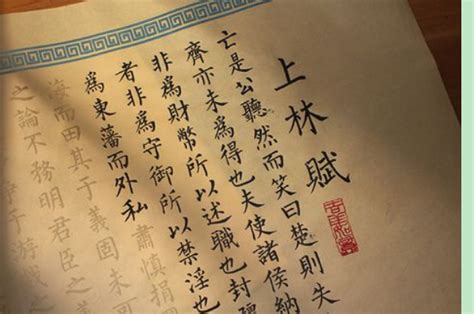 上林賦
亡是公聽然而笑曰楚則失
齊亦未爲得也夫使諸侯納
非爲財幣所以述職也封疆
者非爲守御所以禁淫也
爲東藩而外私肅慎捐
海而田其于義固未可
之論不務明君臣之義
于游戲